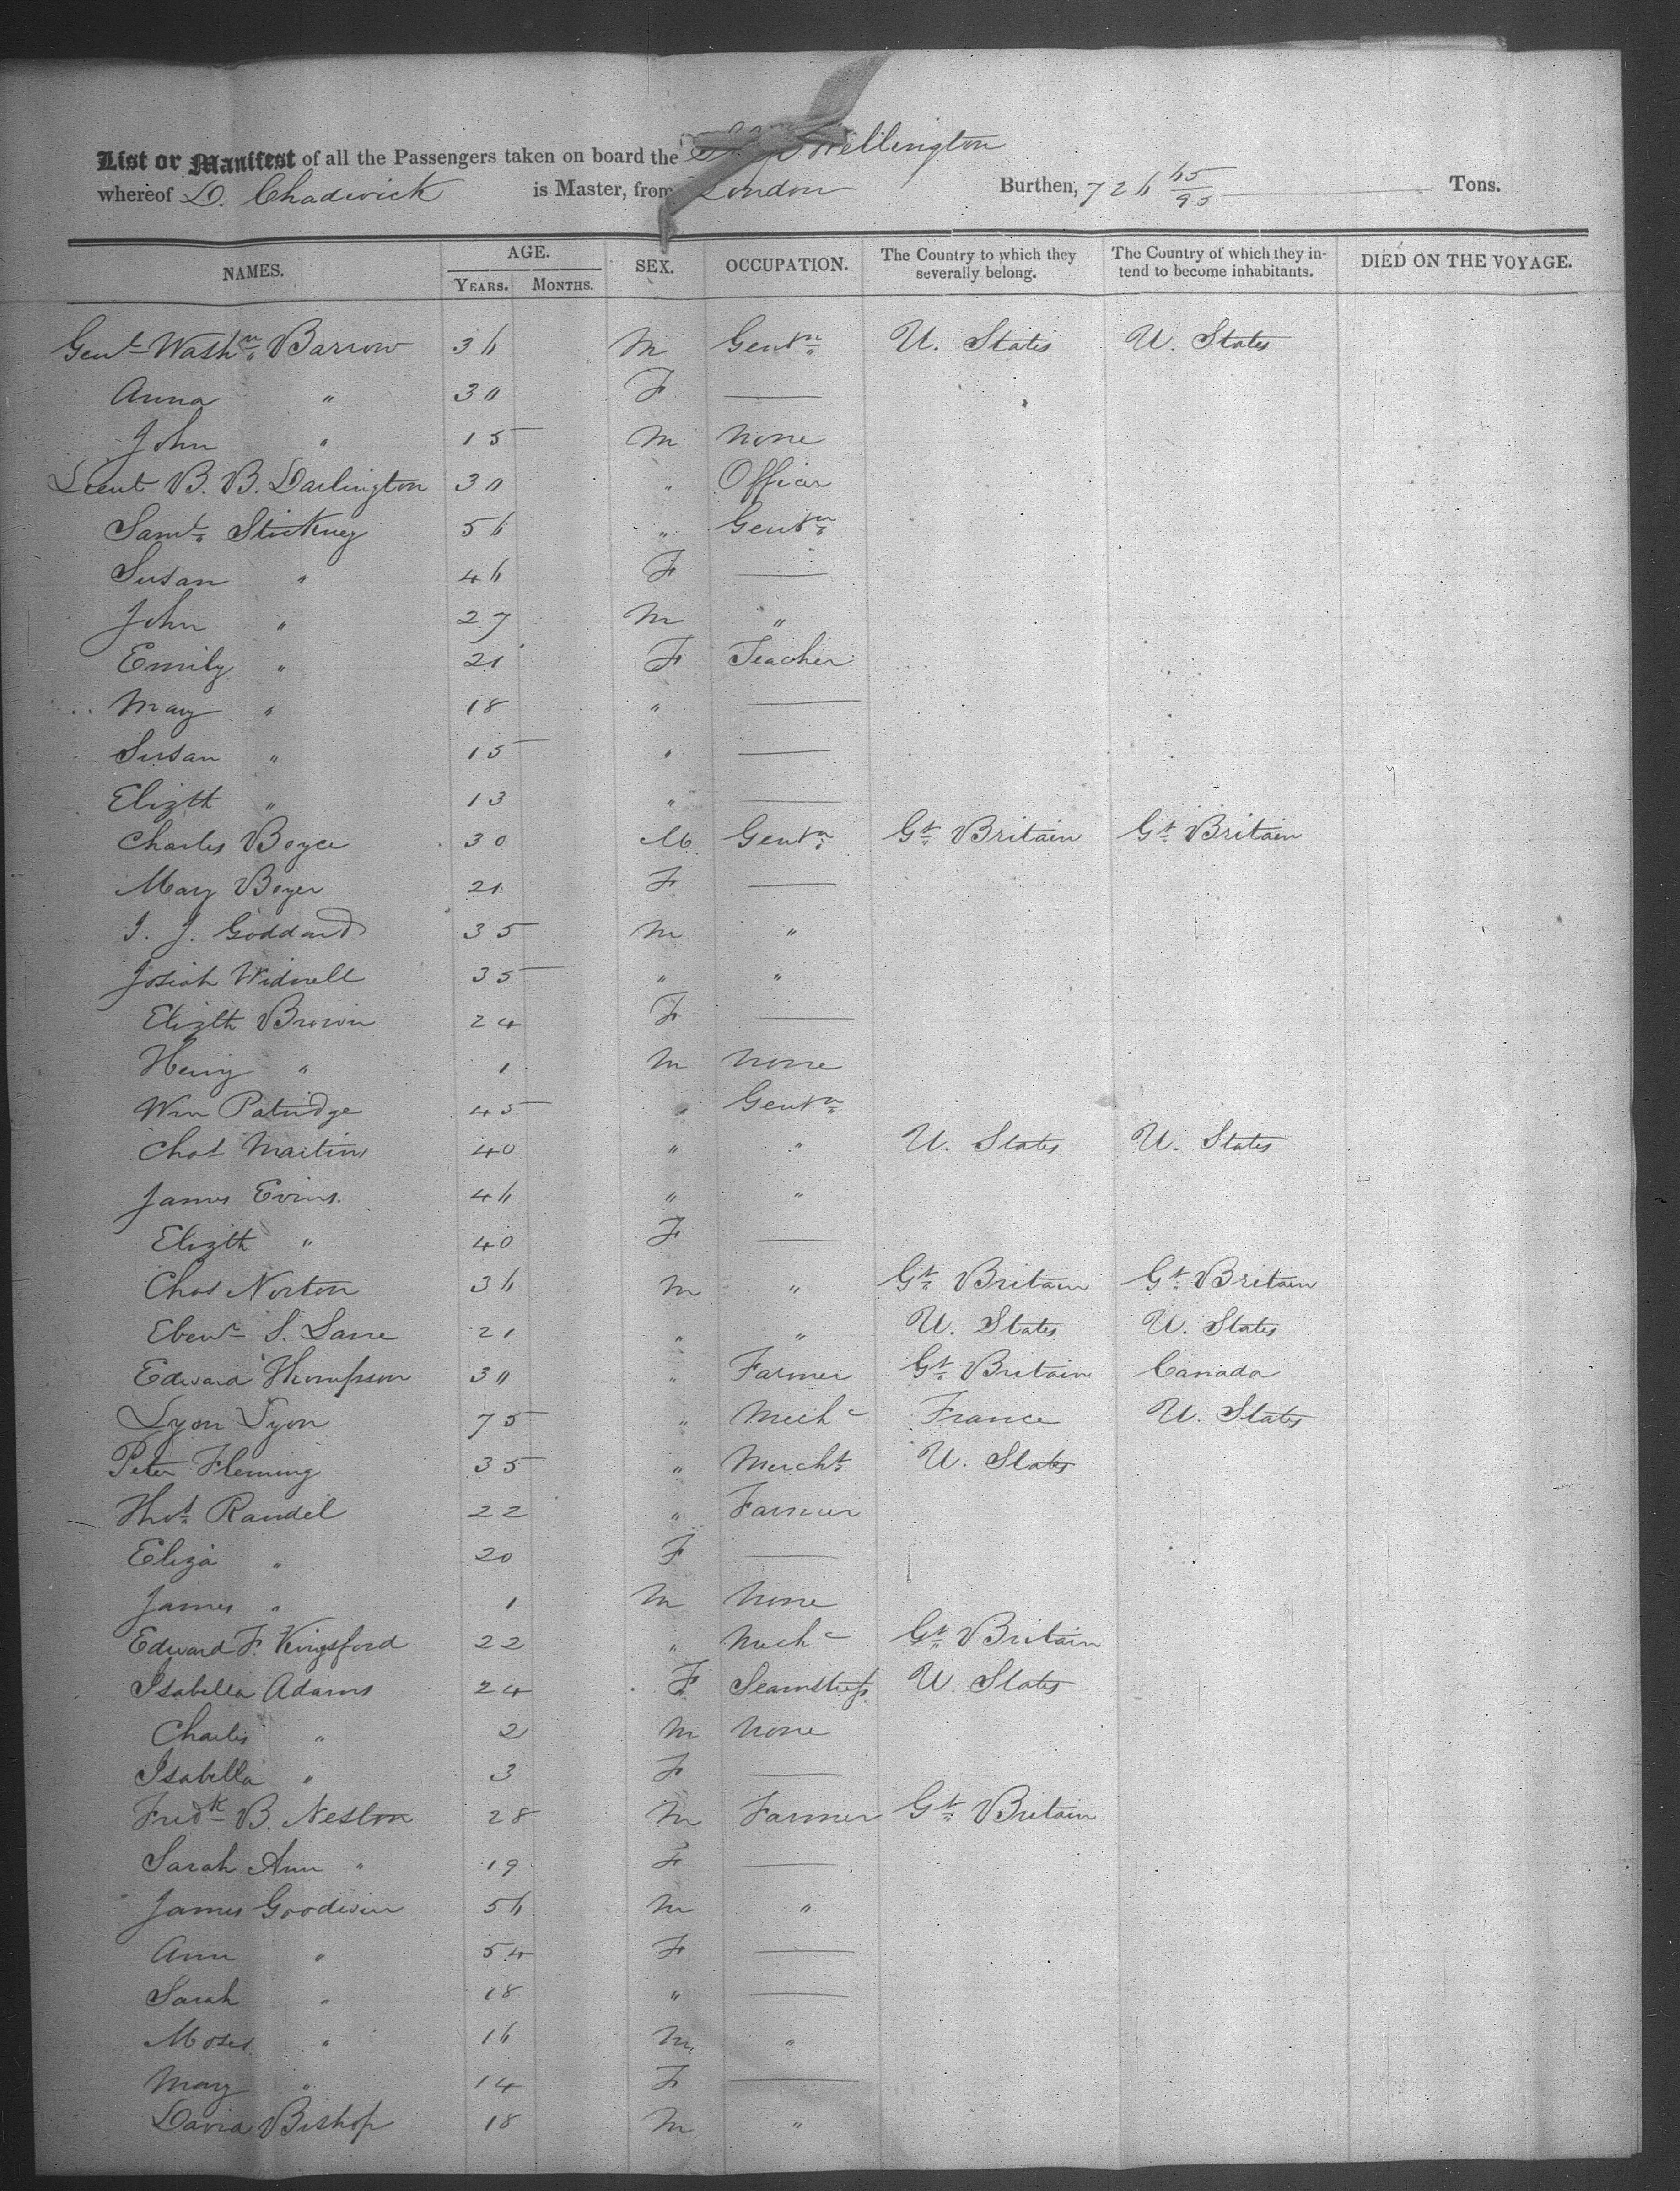 List or Manifest of all the Passengers taken on board the Wellington
whereof D. Chadwick is Master, from London Burthen, 726 65/95 Tons.
NAMES. AGE. YEARS. MONTHS. SEX. OCCUPATION. The Country to which they severally belong. The Country of which they intend to become inhabitants. DIED ON THE VOYAGE.
Genl Washn Barrow 36 M Gentn U. States U. States
Anna " 30 F —
John " 15 M None
Lieut B. B. Darlington 30 " Officer
Saml Stickney 56 " Gentn
Susan " 46 F —
John " 27 M "
Emily " 21 F Teacher
Mary " 18 " —
Susan " 15 " —
Elizth " 13 " —
Charles Boyce 30 M Gentn Gt Britain Gt Britain
Mary Boyer 21 F —
J. J. Goddard 35 M "
Josiah Widnell 35 " "
Elizth Brown 24 F —
Henry " 1 M None
Wm Patridge 45 " Gentn
Chas Martin 40 " " U. States U. States
James Evins. 46 " "
Elizth " 40 F —
Chas Norton 36 M " Gt Britain Gt Britain
Ebenr S. Lane 21 " " U. States U. States
Edward Thompson 30 " Farmer Gt Britain Canada
Lyon Lyon 75 " Mechc France U. States
Peter Fleming 35 " Mercht U. States
Thos Randel 22 " Farmer
Eliza " 20 F —
James " 1 M None
Edward F. Kingsford 22 " Mechc Gt Britain
Isabella Adams 24 F Seamstress U. States
Charles " 2 M None
Isabella " 3 F —
Fredk B. Neston 28 M Farmer Gt Britain
Sarah Ann " 19 F —
James Goodwin 56 M "
Ann " 54 F —
Sarah " 18 " —
Moses " 16 M "
Mary " 14 F —
David Bishop 18 M "